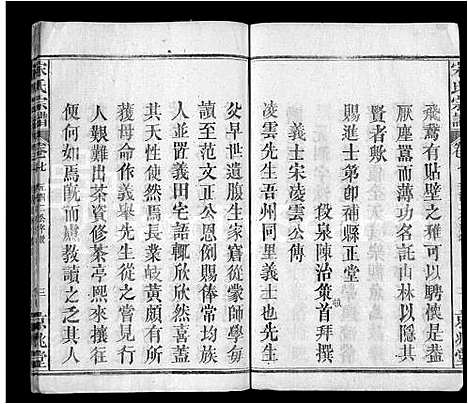 宋氏宗譜
飛鳶有貼壁之雅可以騁懷是蓋
厭塵囂而薄功名託山林以隱其
賢者歟
賜進士第即補縣正堂
段泉陳治策首拜撰
義士宋凌雲公傳
凌雲先生吾州同里義士也先生
父早世遺腹生家窘從蒙師學每
讀至范文正公恩例賜俸常均族
人并置義田宅語輒欣欣然喜蓋
天性使然焉長業岐黃頗有所
獲母命作義舉先生之嘗見行
人艱難出茶資修茶亭熙來攘往
便何如焉旣而慮教讀之之其
宋氏宗譜
卷之七
三
京兆堂